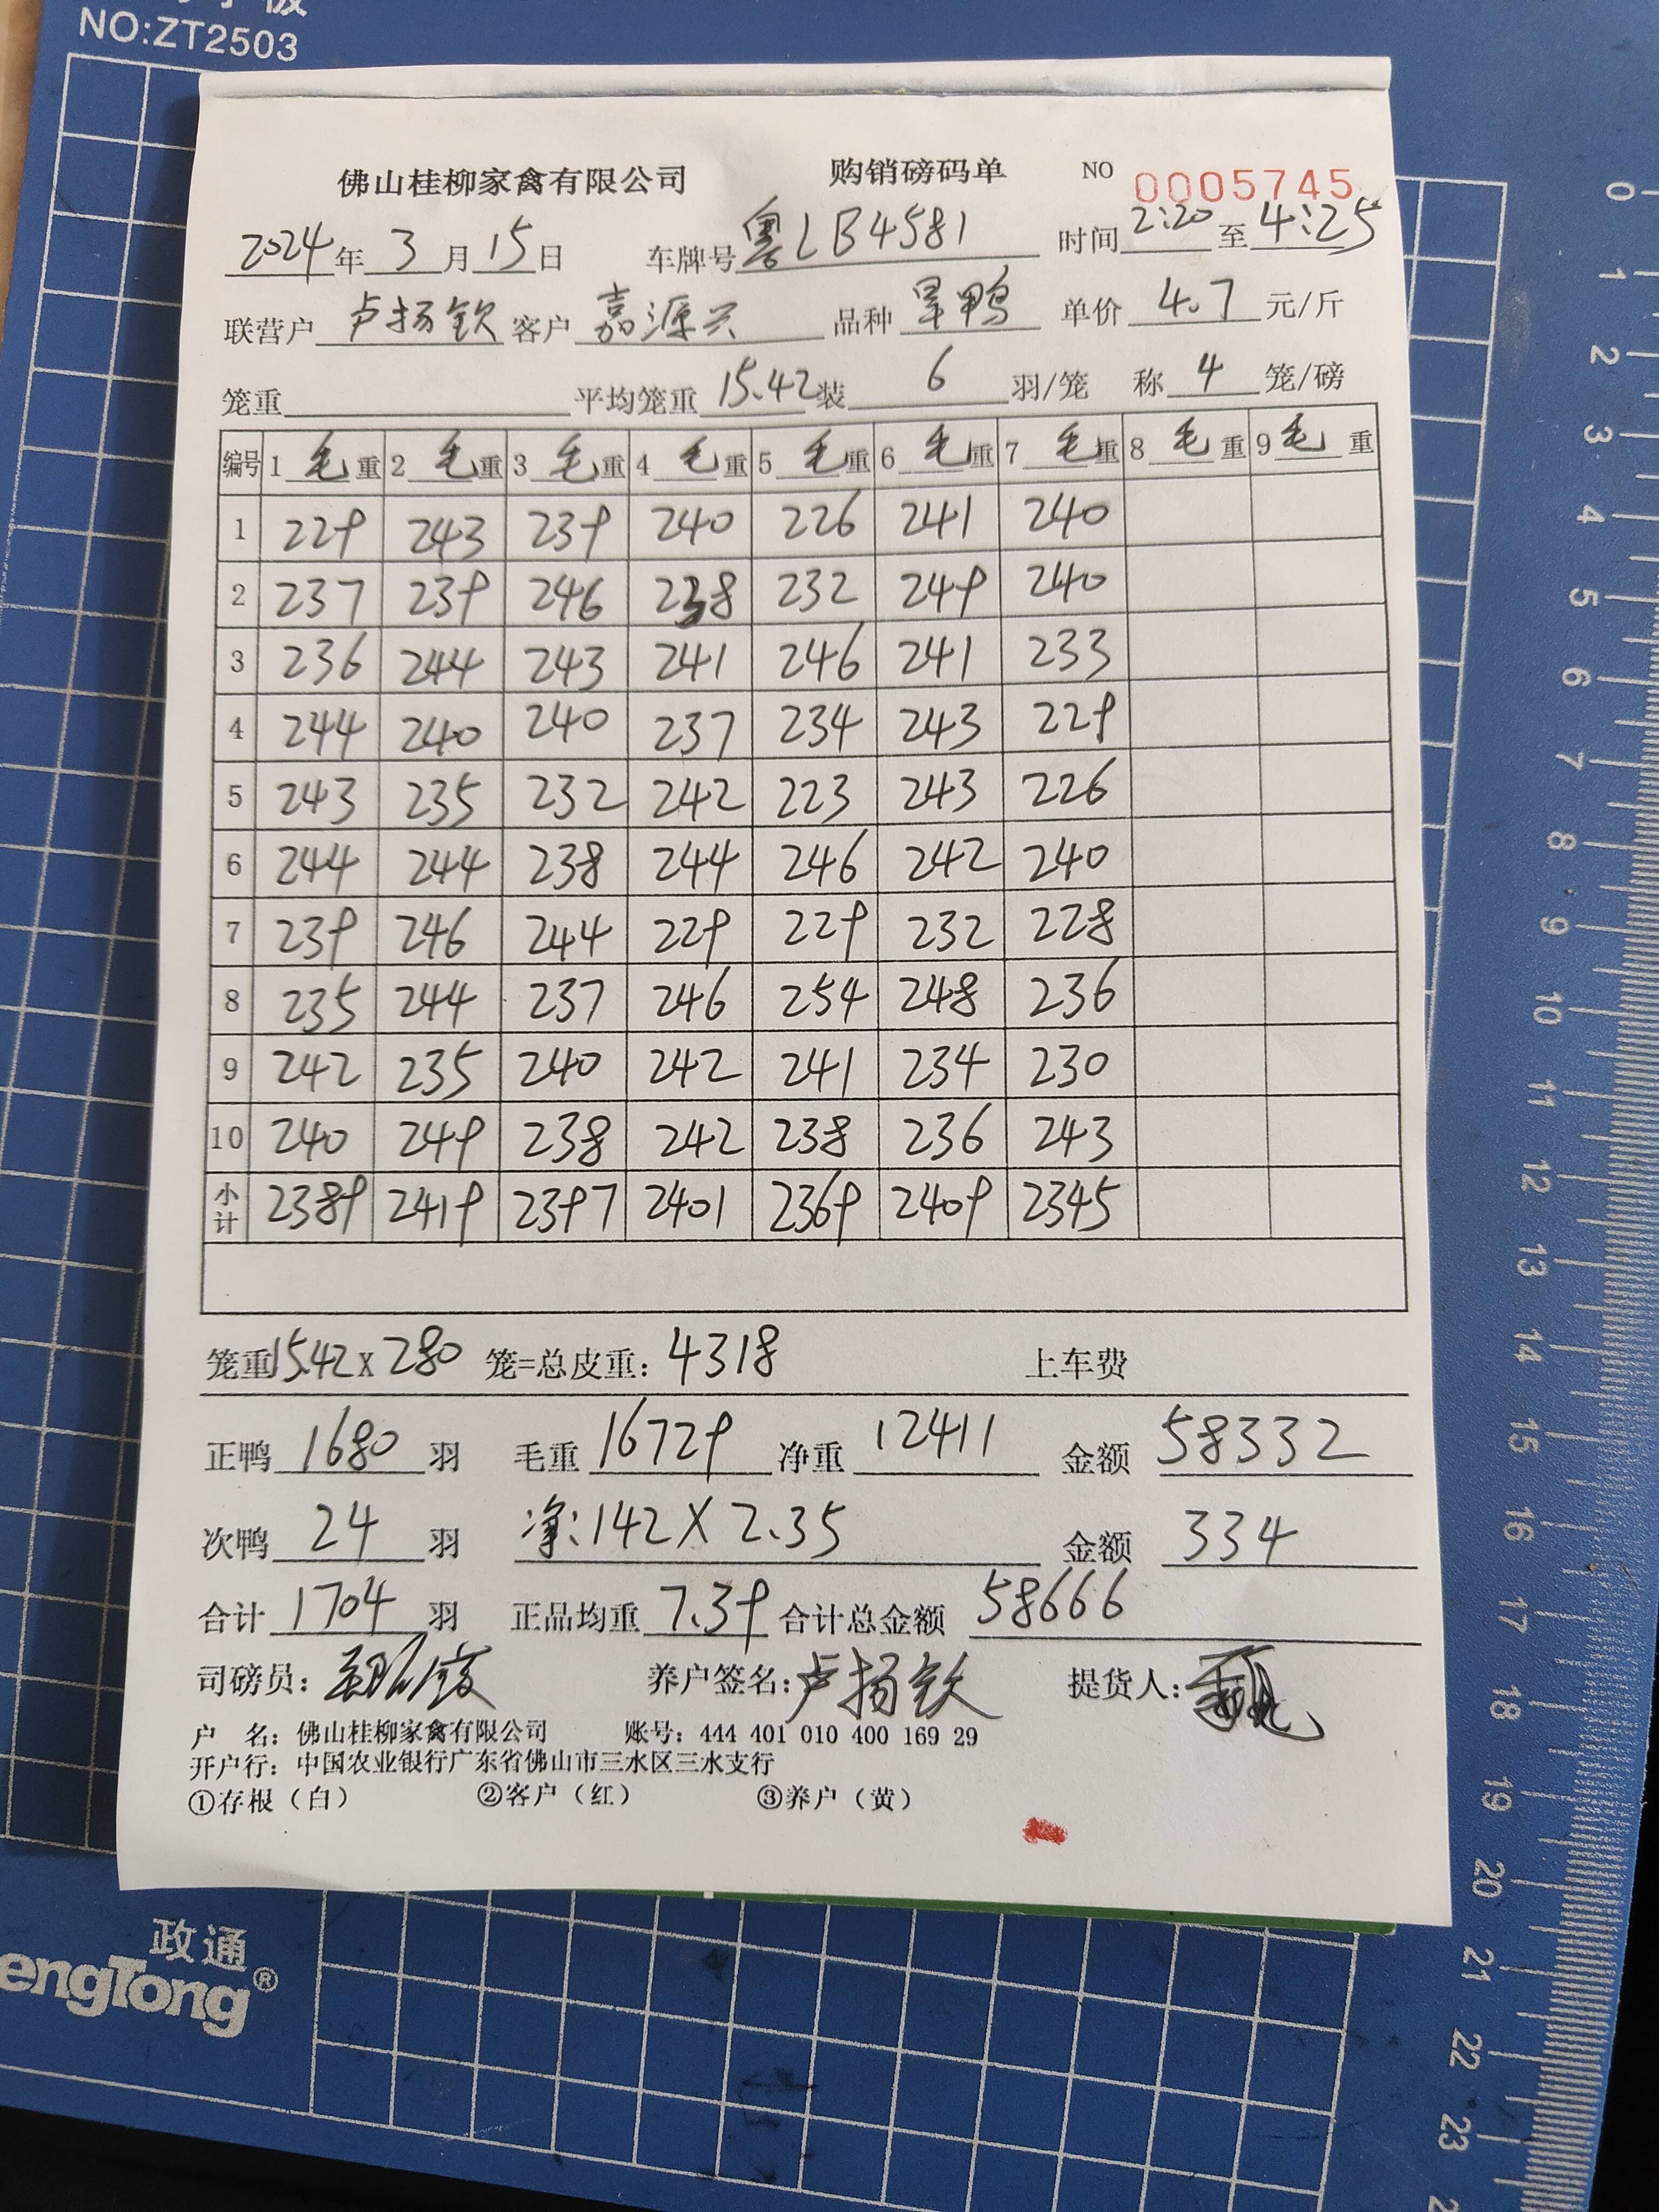 NO:ZT2503
佛山桂柳家禽有限公司 购销磅码单 NO 0005745
2024年3月15日 车牌号粤LB4581 时间2:20至4:25
联营户 卢扬钦 客户 嘉源兴 品种 旱鸭 单价 4.7 元/斤
笼重 平均笼重 15.42 装 6 羽/笼 称 4 笼/磅
编号 1毛重 2毛重 3毛重 4毛重 5毛重 6毛重 7毛重 8毛重 9毛重
1 229 243 239 240 226 241 240
2 237 239 246 238 232 249 240
3 236 244 243 241 246 241 233
4 244 240 240 237 234 243 229
5 243 235 232 242 223 243 226
6 244 244 238 244 246 242 240
7 239 246 244 229 229 232 228
8 235 244 237 246 254 248 236
9 242 235 240 242 241 234 230
10 240 249 238 242 238 236 243
小计 2389 2419 2397 2401 2369 2409 2345
笼重15.42 X 280 笼=总皮重: 4318 上车费
正鸭 1680 羽 毛重 16729 净重 12411 金额 58332
次鸭 24 羽 净:142X2.35 金额 334
合计 1704 羽 正品均重 7.39 合计总金额 58666
司磅员: 养户签名:卢扬钦 提货人:
户 名: 佛山桂柳家禽有限公司 账号: 444 401 010 400 169 29
开户行: 中国农业银行广东省佛山市三水区三水支行
①存根（白） ②客户（红） ③养户（黄）
政通
engTong®
0
1
2
3
4
5
6
7
8
9
10
11
12
13
14
15
16
17
18
19
20
21
22
23